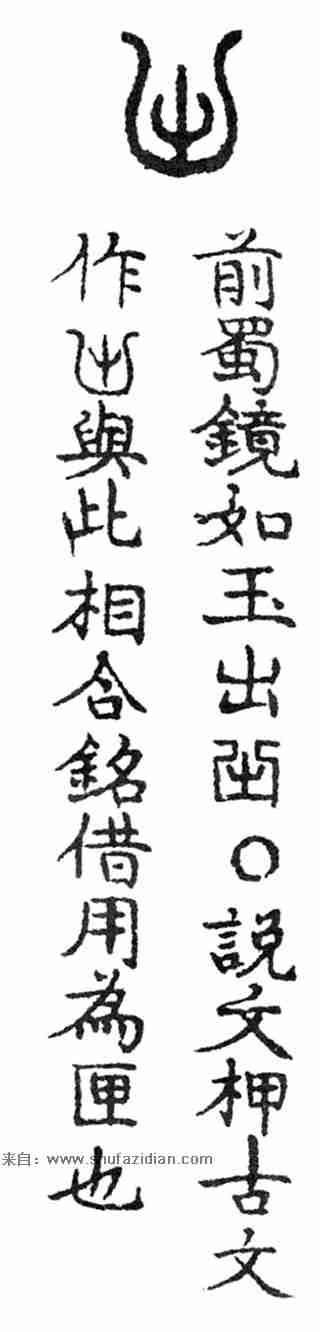 前蜀鏡如玉出〇説文柙古文
作𠙹與此相合銘借用為匣也
来自：www.shufazidian.com